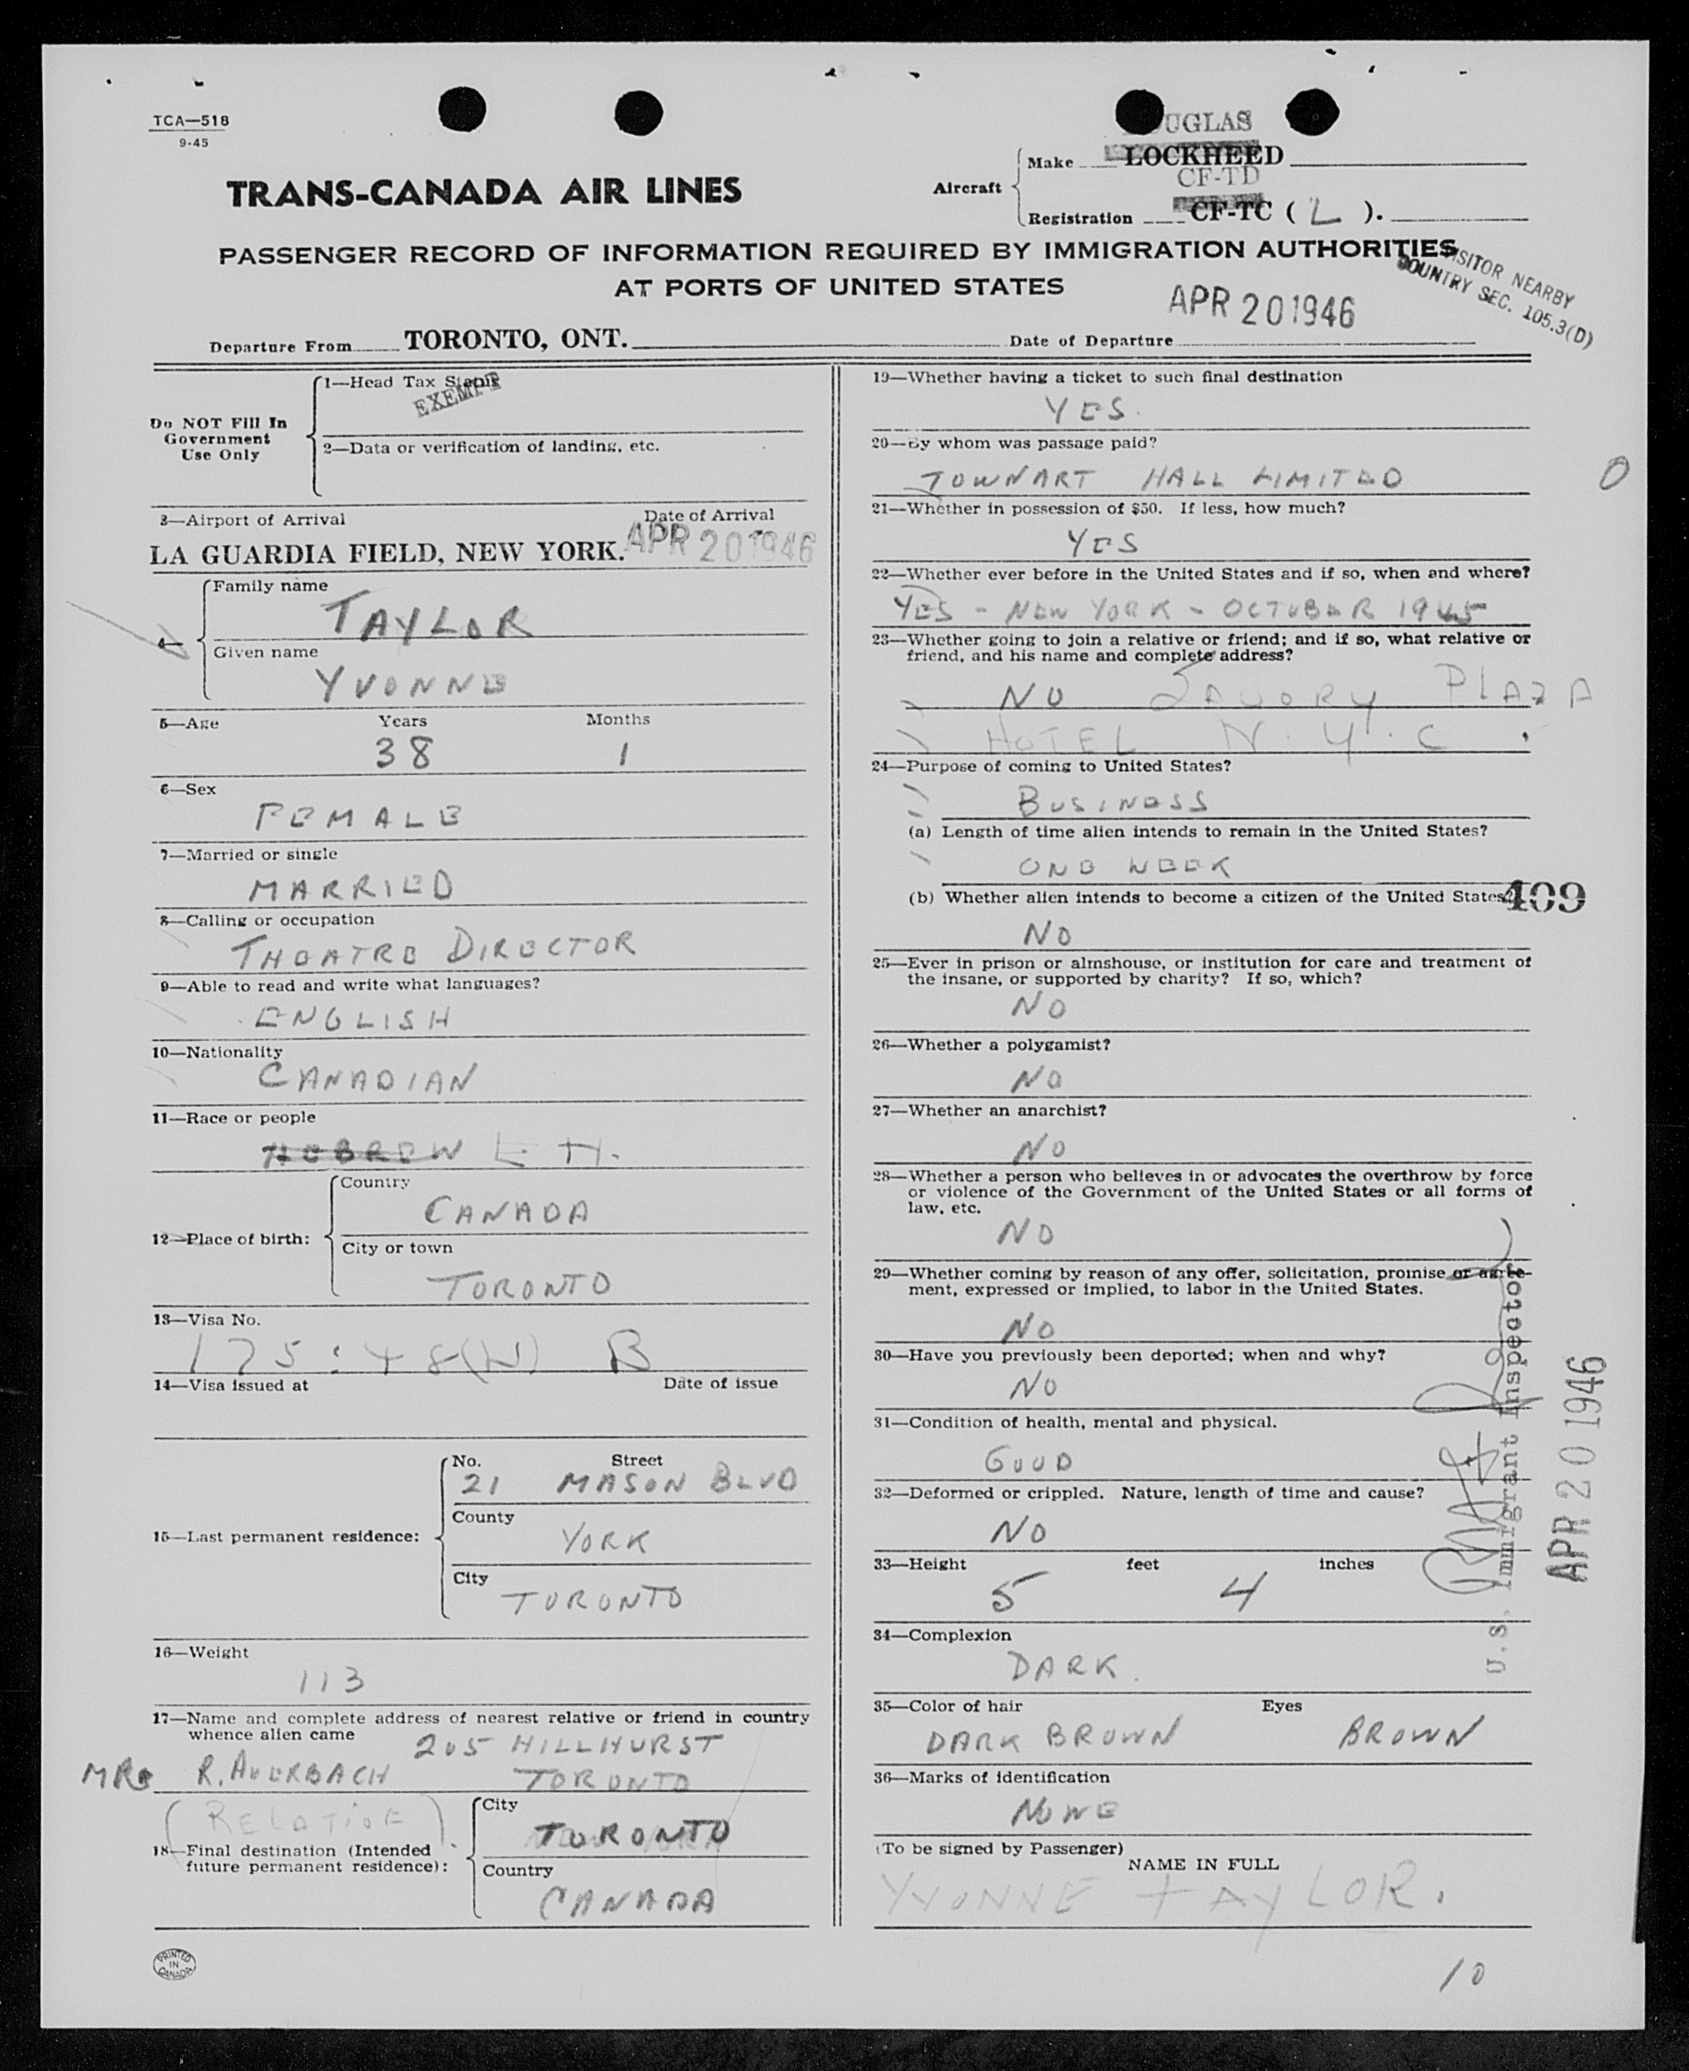 TCA—518
9-45
UGLAS
Aircraft
Make LOCKHEED
CF-TD
Registration CF-TC ( L ).
TRANS-CANADA AIR LINES
PASSENGER RECORD OF INFORMATION REQUIRED BY IMMIGRATION AUTHORITIES
AT PORTS OF UNITED STATES
VISITOR NEARBY
COUNTRY SEC. 105.3(D)
APR 20 1946
Departure From TORONTO, ONT.
Date of Departure
Do NOT Fill In
Government
Use Only
1—Head Tax Status
EXEMPT
2—Data or verification of landing, etc.
3—Airport of Arrival
Date of Arrival
LA GUARDIA FIELD, NEW YORK.
APR 20 1946
4—
Family name
TAYLOR
Given name
YVONNE
5—Age Years Months
38 1
6—Sex
FEMALE
7—Married or single
MARRIED
8—Calling or occupation
THEATRE DIRECTOR
9—Able to read and write what languages?
ENGLISH
10—Nationality
CANADIAN
11—Race or people
HEBREW
12—Place of birth:
Country
CANADA
City or town
TORONTO
13—Visa No.
175:48(W) B
14—Visa issued at Date of issue
15—Last permanent residence:
No. Street
21 MASON BLVD
County
YORK
City
TORONTO
16—Weight
113
17—Name and complete address of nearest relative or friend in country
whence alien came
205 HILLHURST
MRS R. AUERBACH TORONTO
(RELATIVE)
18—Final destination (Intended
future permanent residence):
City
TORONTO
Country
CANADA
PRINTED
IN
CANADA
19—Whether having a ticket to such final destination
YES.
20—By whom was passage paid?
TOWNART HALL LIMITED
0
21—Whether in possession of $50. If less, how much?
YES
22—Whether ever before in the United States and if so, when and where?
YES - NEW YORK - OCTOBER 1945
23—Whether going to join a relative or friend; and if so, what relative or
friend, and his name and complete address?
NO SAVORY PLAZA
HOTEL N.Y.C.
24—Purpose of coming to United States?
BUSINESS
(a) Length of time alien intends to remain in the United States?
ONE WEEK
(b) Whether alien intends to become a citizen of the United States?
409
NO
25—Ever in prison or almshouse, or institution for care and treatment of
the insane, or supported by charity? If so, which?
NO
26—Whether a polygamist?
NO
27—Whether an anarchist?
NO
28—Whether a person who believes in or advocates the overthrow by force
or violence of the Government of the United States or all forms of
law, etc.
NO
29—Whether coming by reason of any offer, solicitation, promise or agree-
ment, expressed or implied, to labor in the United States.
NO
30—Have you previously been deported; when and why?
NO
31—Condition of health, mental and physical.
GOOD
32—Deformed or crippled. Nature, length of time and cause?
NO
33—Height feet inches
5 4
34—Complexion
DARK.
35—Color of hair Eyes
DARK BROWN BROWN
36—Marks of identification
NONE
(To be signed by Passenger)
NAME IN FULL
YVONNE TAYLOR.
U.S. Immigrant Inspector
APR 20 1946
10